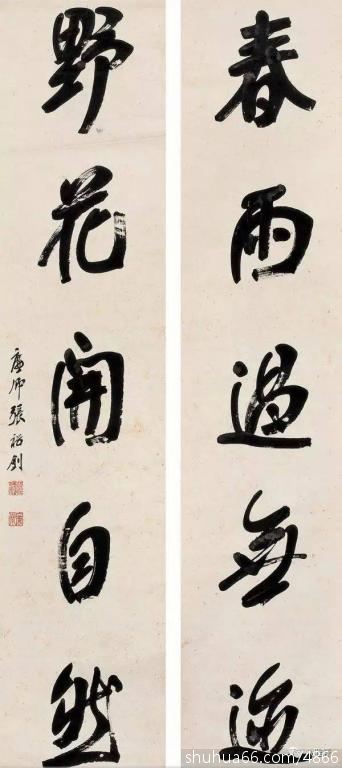 春雨過無迹
野花開自然
廉卿張裕釗
shuhua66.com/4866